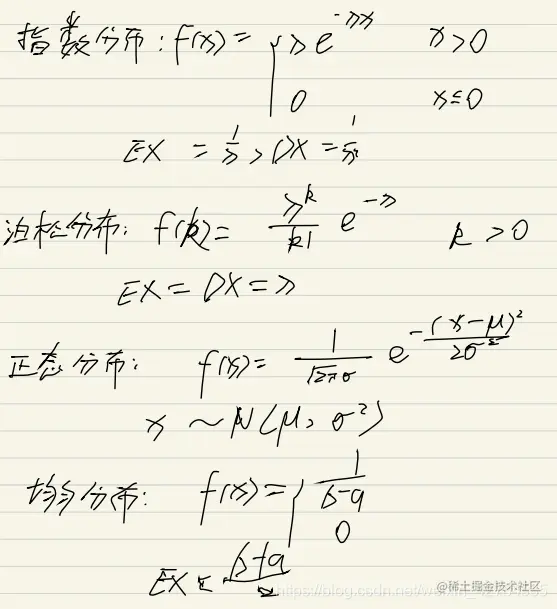 指数分布: f(x) = { λ e^{-λx} x>0
0 x≤0
EX = 1/λ, DX = 1/λ²
泊松分布: f(k) = λ^k/k! e^{-λ} k>0
EX = DX = λ
正态分布: f(x) = 1/(√2π σ) e^{-(x-μ)²/2σ²}
x ~ N(μ, σ²)
均匀分布: f(x) = { 1/(b-a)
0
EX = (b+a)/2
@稀土掘金技术社区